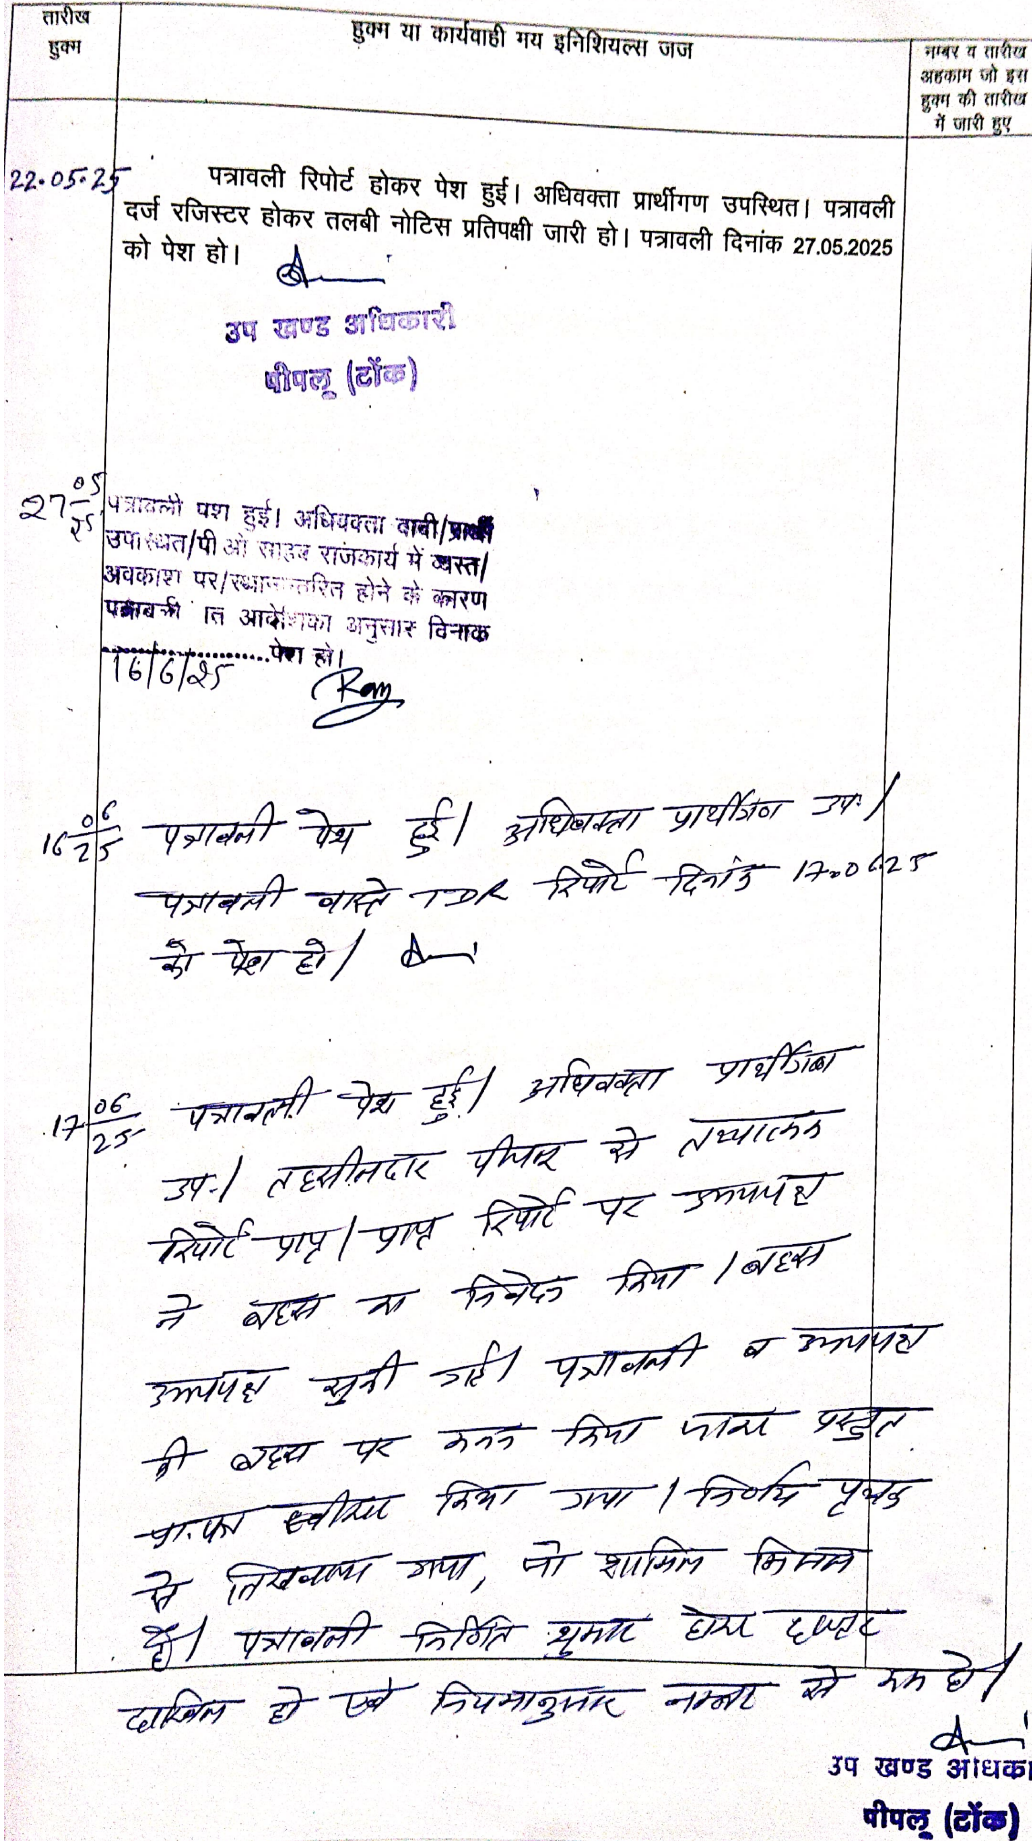 तारीख
हुक्म
हुक्म या कार्यवाही मय इनिशियल्स जज
नम्बर व तारीख
अहकाम जो इस
हुक्म की तारीख
में जारी हुए
22.05.25
पत्रावली रिपोर्ट होकर पेश हुई। अधिवक्ता प्रार्थीगण उपस्थित। पत्रावली
दर्ज रजिस्टर होकर तलबी नोटिस प्रतिपक्षी जारी हो। पत्रावली दिनांक 27.05.2025
को पेश हो।
उप खण्ड अधिकारी
पीपलू (टोंक)
27 05/25
पत्रावली पेश हुई। अधिवक्ता वादी/प्रार्थी
उपस्थित/पी ओ साहब राजकार्य में व्यस्त/
अवकाश पर/स्थानान्तरित होने के कारण
पत्रावली आदेशिका अनुसार दिनांक
..................पेश हो।
16/6/25
16 06/25
पत्रावली पेश हुई। अधिवक्ता प्रार्थीगण उप.।
पत्रावली वास्ते TDR रिपोर्ट दिनांक 17.06.25
को पेश हो।
17 06/25
पत्रावली पेश हुई। अधिवक्ता प्रार्थीगण
उप.। तहसीलदार पीपलू से तथ्यात्मक
रिपोर्ट प्राप्त। प्राप्त रिपोर्ट पर उभयपक्ष
ने बहस का निवेदन किया। बहस
उभयपक्ष सुनी गई। पत्रावली व उभयपक्ष
की बहस पर मनन किया जाकर प्रस्तुत
प्रा.पत्र स्वीकार किया गया। निर्णय पृथक
से लिखवाया गया, जो शामिल मिसल
है। पत्रावली निर्णित शुमार होकर दफ्तर
दाखिल हो एवं नियमानुसार नम्बर से कम हो।
उप खण्ड अधिका
पीपलू (टोंक)